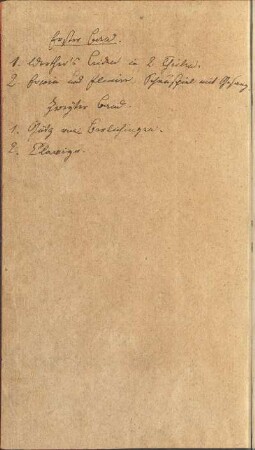 Erster Band.
1. Werther's Leiden in 2 Theilen.
2. Erwin und Elmire. Schauspiel mit Gesang.
Zweyter Band.
1. Götz von Berlichingen.
2. Clavigo.